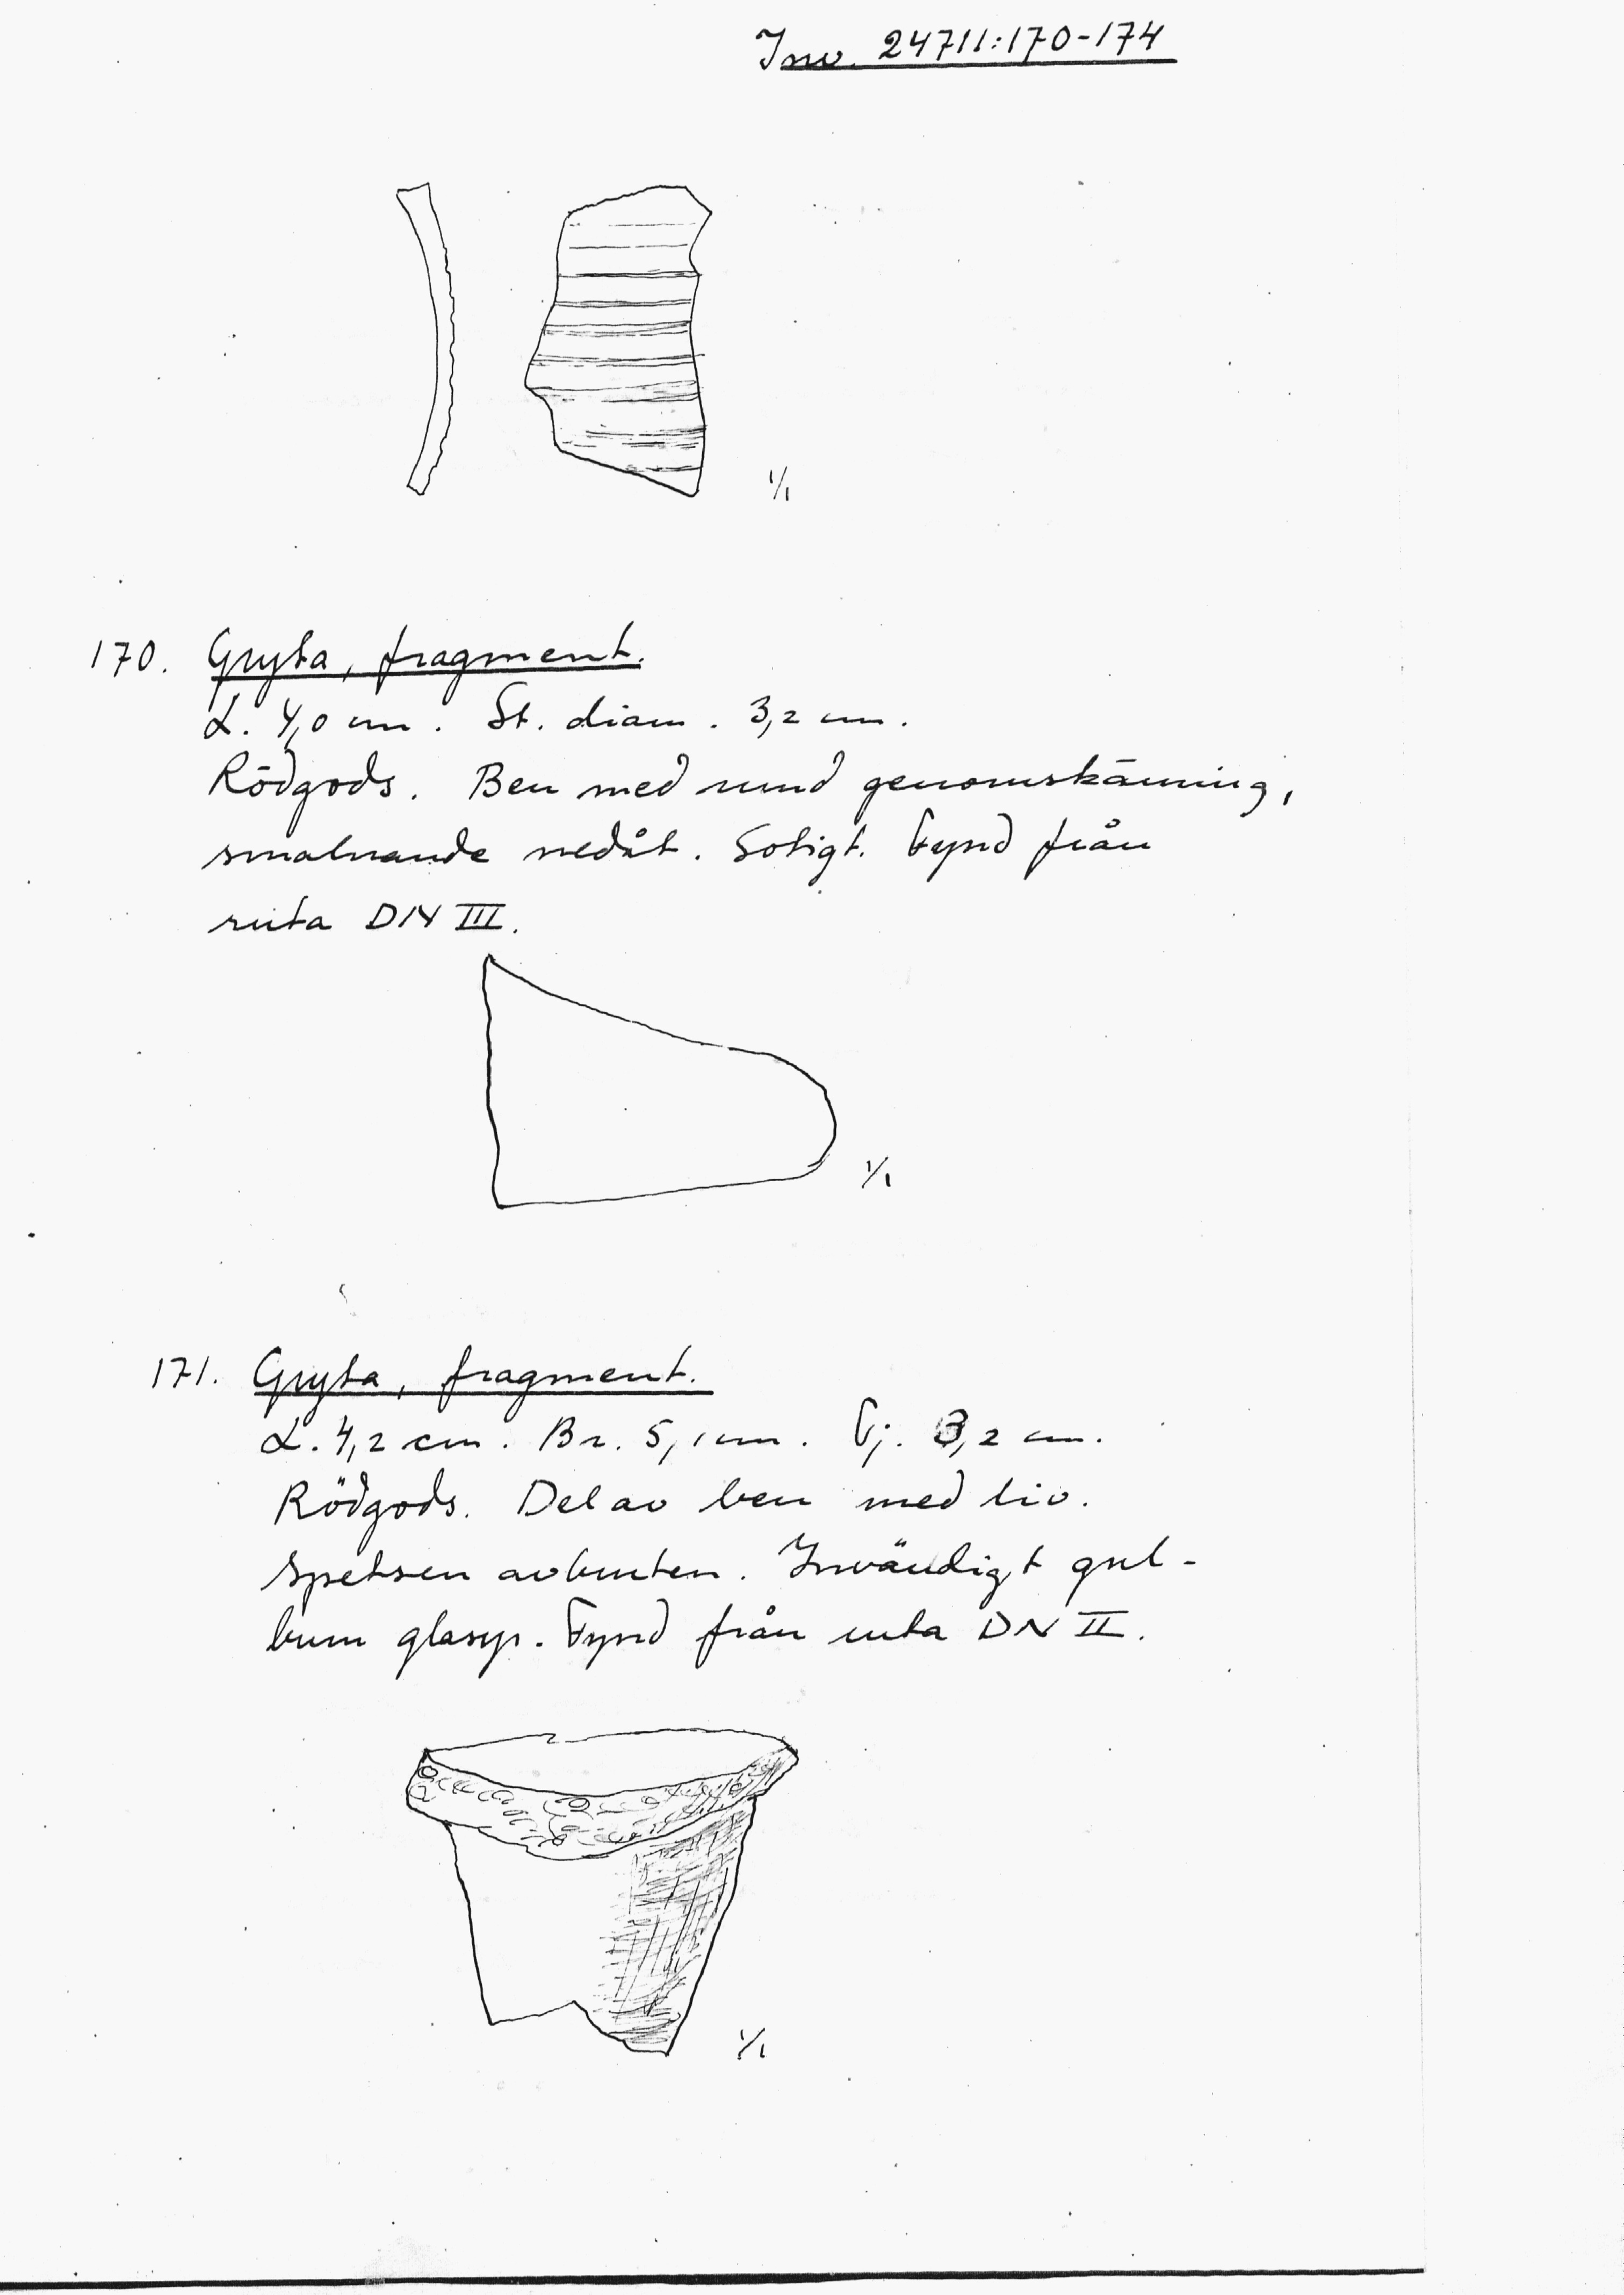 Inv. 24711:170-174
1/1
170. Gryta, fragment.
L. 4,0 cm. St. diam. 3,2 cm.
Rödgods. Ben med rund genomskärning,
smalnande nedåt. Sotigt. Fynd från
ruta DN III.
1/1
171. Gryta, fragment.
L. 4,2 cm. Br. 5,1 cm. Tj. 3,2 cm.
Rödgods. Del av ben med liv.
Spetsen avbruten. Invändigt gul-
brun glasyr. Fynd från ruta DN II.
1/1